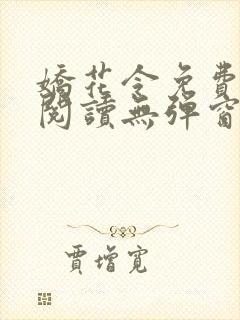 嬌花令免費
閱讀無彈窗
賈增寬